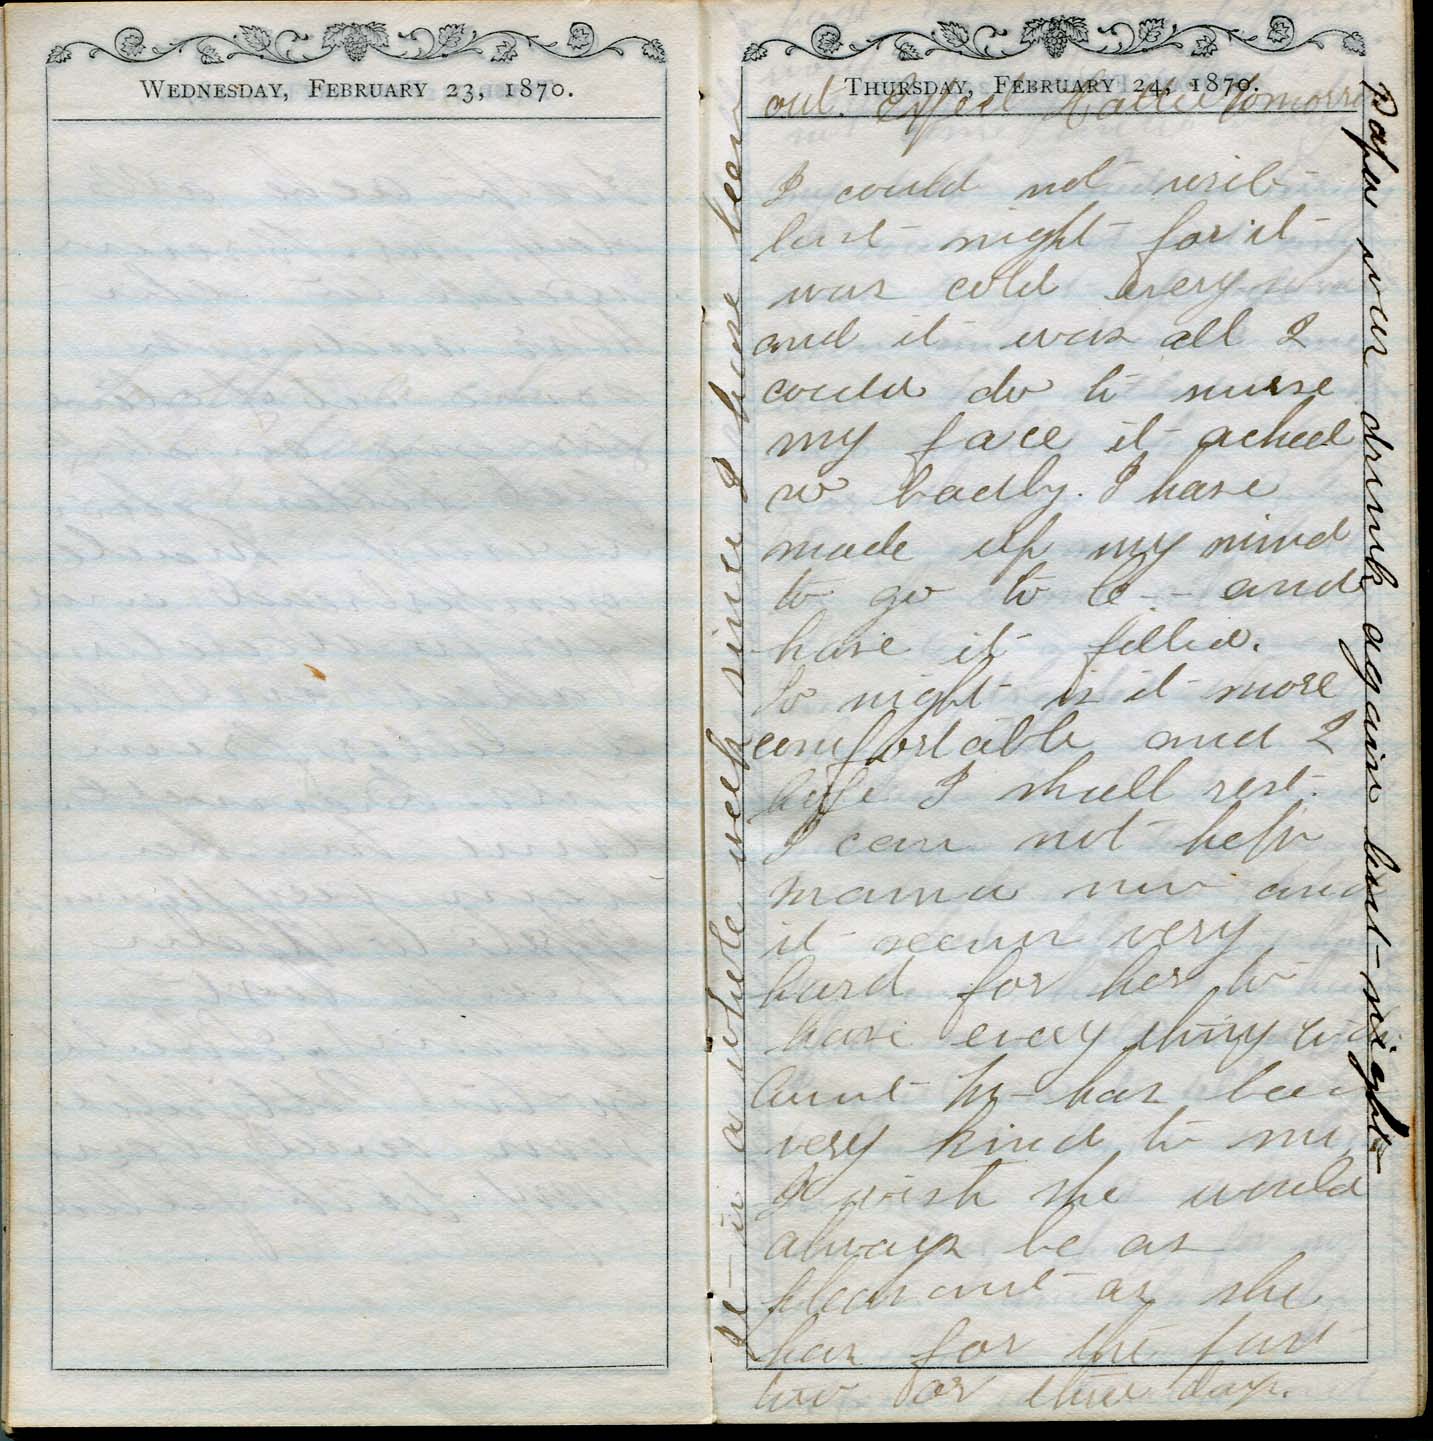 WEDNESDAY, FEBRUARY 23, 1870.
THURSDAY, FEBRUARY 24, 1870.
I could not write
last night for it
was cold every
and it was all I
could do to nurse
my face it ached
so badly. I have
made up my mind
to go to C-- and
have it filled.
To night is it more
comfortable and I
hope I shall rest.
I can not help
mama now and
it seems very
hard for her to
have every thing to do
Aunt H- has been
very kind to me
I wish she would
always be as
pleasant as she
has for the past
two or three days.
It is a whole week since I have been
out. Expect Hattie tomorrow
Papa was drunk again last night